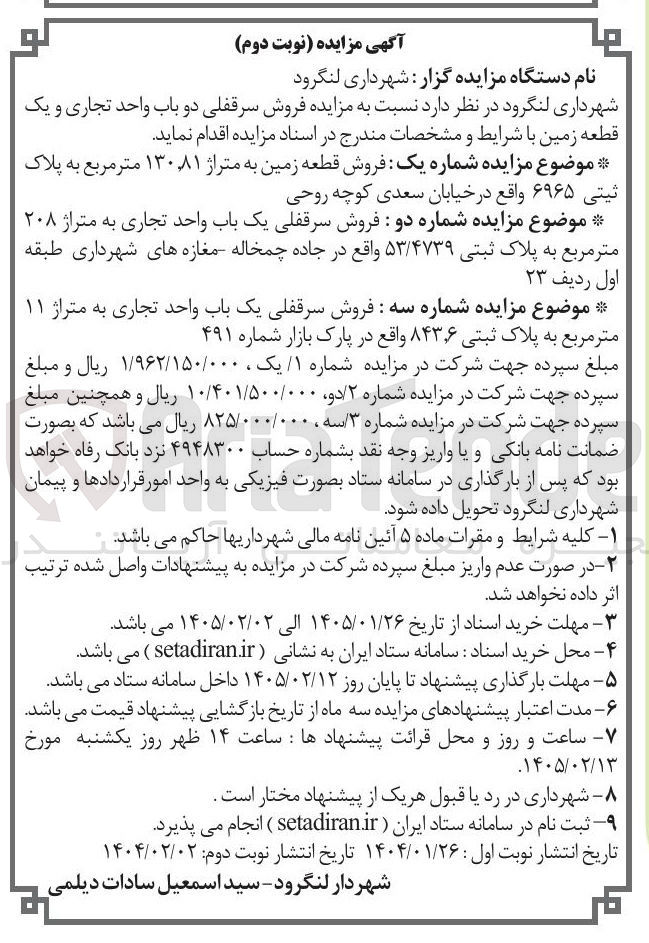 آگهی مزایده (نوبت دوم)
نام دستگاه مزایده گزار : شهرداری لنگرود
شهرداری لنگرود در نظر دارد نسبت به مزایده فروش سرقفلی دو باب واحد تجاری و یک
قطعه زمین با شرایط و مشخصات مندرج در اسناد مزایده اقدام نماید.
* موضوع مزایده شماره یک : فروش قطعه زمین به متراژ ۱۳۰,۸۱ مترمربع به پلاک
ثیتی ۶۹۶۵ واقع درخیابان سعدی کوچه روحی
* موضوع مزایده شماره دو : فروش سرقفلی یک باب واحد تجاری به متراژ ۲۰۸
مترمربع به پلاک ثبتی ۵۳/۴۷۳۹ واقع در جاده چمخاله -مغازه های شهرداری طبقه
اول ردیف ۲۳
* موضوع مزایده شماره سه : فروش سرقفلی یک باب واحد تجاری به متراژ ۱۱
مترمربع به پلاک ثبتی ۸۴۳,۶ واقع در پارک بازار شماره ۴۹۱
مبلغ سپرده جهت شرکت در مزایده شماره ۱/ یک ، ۱/۹۶۲/۱۵۰/۰۰۰ ریال و مبلغ
سپرده جهت شرکت در مزایده شماره ۲/دو، ۱۰/۴۰۱/۵۰۰/۰۰۰ ریال و همچنین مبلغ
سپرده جهت شرکت در مزایده شماره ۳/سه ، ۸۲۵/۰۰۰/۰۰۰ ریال می باشد که بصورت
ضمانت نامه بانکی و یا واریز وجه نقد بشماره حساب ۴۹۴۸۳۰۰ نزد بانک رفاه خواهد
بود که پس از بارگذاری در سامانه ستاد بصورت فیزیکی به واحد امورقراردادها و پیمان
شهرداری لنگرود تحویل داده شود.
۱- کلیه شرایط و مقرات ماده ۵ آئین نامه مالی شهرداریها حاکم می باشد.
۲-در صورت عدم واریز مبلغ سپرده شرکت در مزایده به پیشنهادات واصل شده ترتیب
اثر داده نخواهد شد.
۳- مهلت خرید اسناد از تاریخ ۱۴۰۵/۰۱/۲۶ الی ۱۴۰۵/۰۲/۰۲ می باشد.
۴- محل خرید اسناد : سامانه ستاد ایران به نشانی ( setadiran.ir ) می باشد.
۵- مهلت بارگذاری پیشنهاد تا پایان روز ۱۴۰۵/۰۲/۱۲ داخل سامانه ستاد می باشد.
۶- مدت اعتبار پیشنهادهای مزایده سه ماه از تاریخ بازگشایی پیشنهاد قیمت می باشد.
۷- ساعت و روز و محل قرائت پیشنهاد ها : ساعت ۱۴ ظهر روز یکشنبه مورخ
۱۴۰۵/۰۲/۱۳.
۸- شهرداری در رد یا قبول هریک از پیشنهاد مختار است .
۹- ثبت نام در سامانه ستاد ایران ( setadiran.ir ) انجام می پذیرد.
تاریخ انتشار نوبت اول : ۱۴۰۴/۰۱/۲۶ تاریخ انتشار نوبت دوم: ۱۴۰۴/۰۲/۰۲
شهردار لنگرود - سید اسمعیل سادات دیلمی